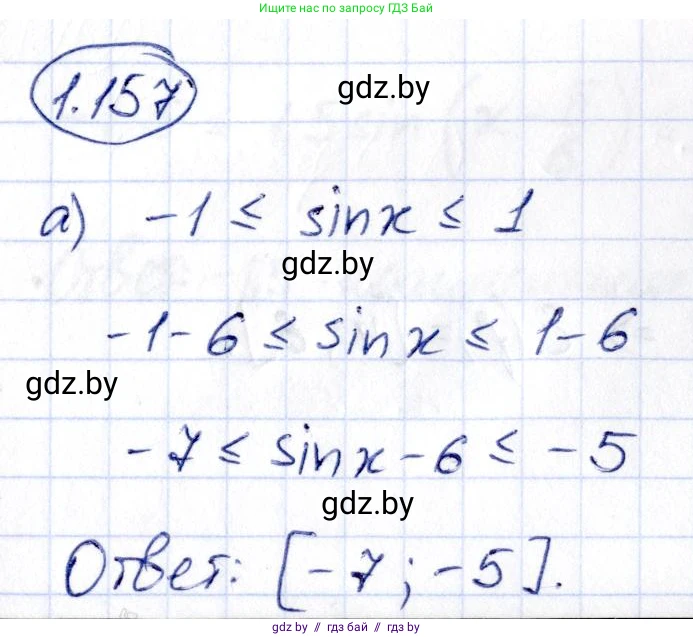 Ищите нас по запросу ГДЗ Бай
1.157
gdz.by
а) -1 ≤ sinx ≤ 1
gdz.by
-1-6 ≤ sinx ≤ 1-6
gdz.by
-7 ≤ sinx-6 ≤ -5
gdz.by
Ответ: [-7; -5].
gdz.by // гдз бай // гдз by